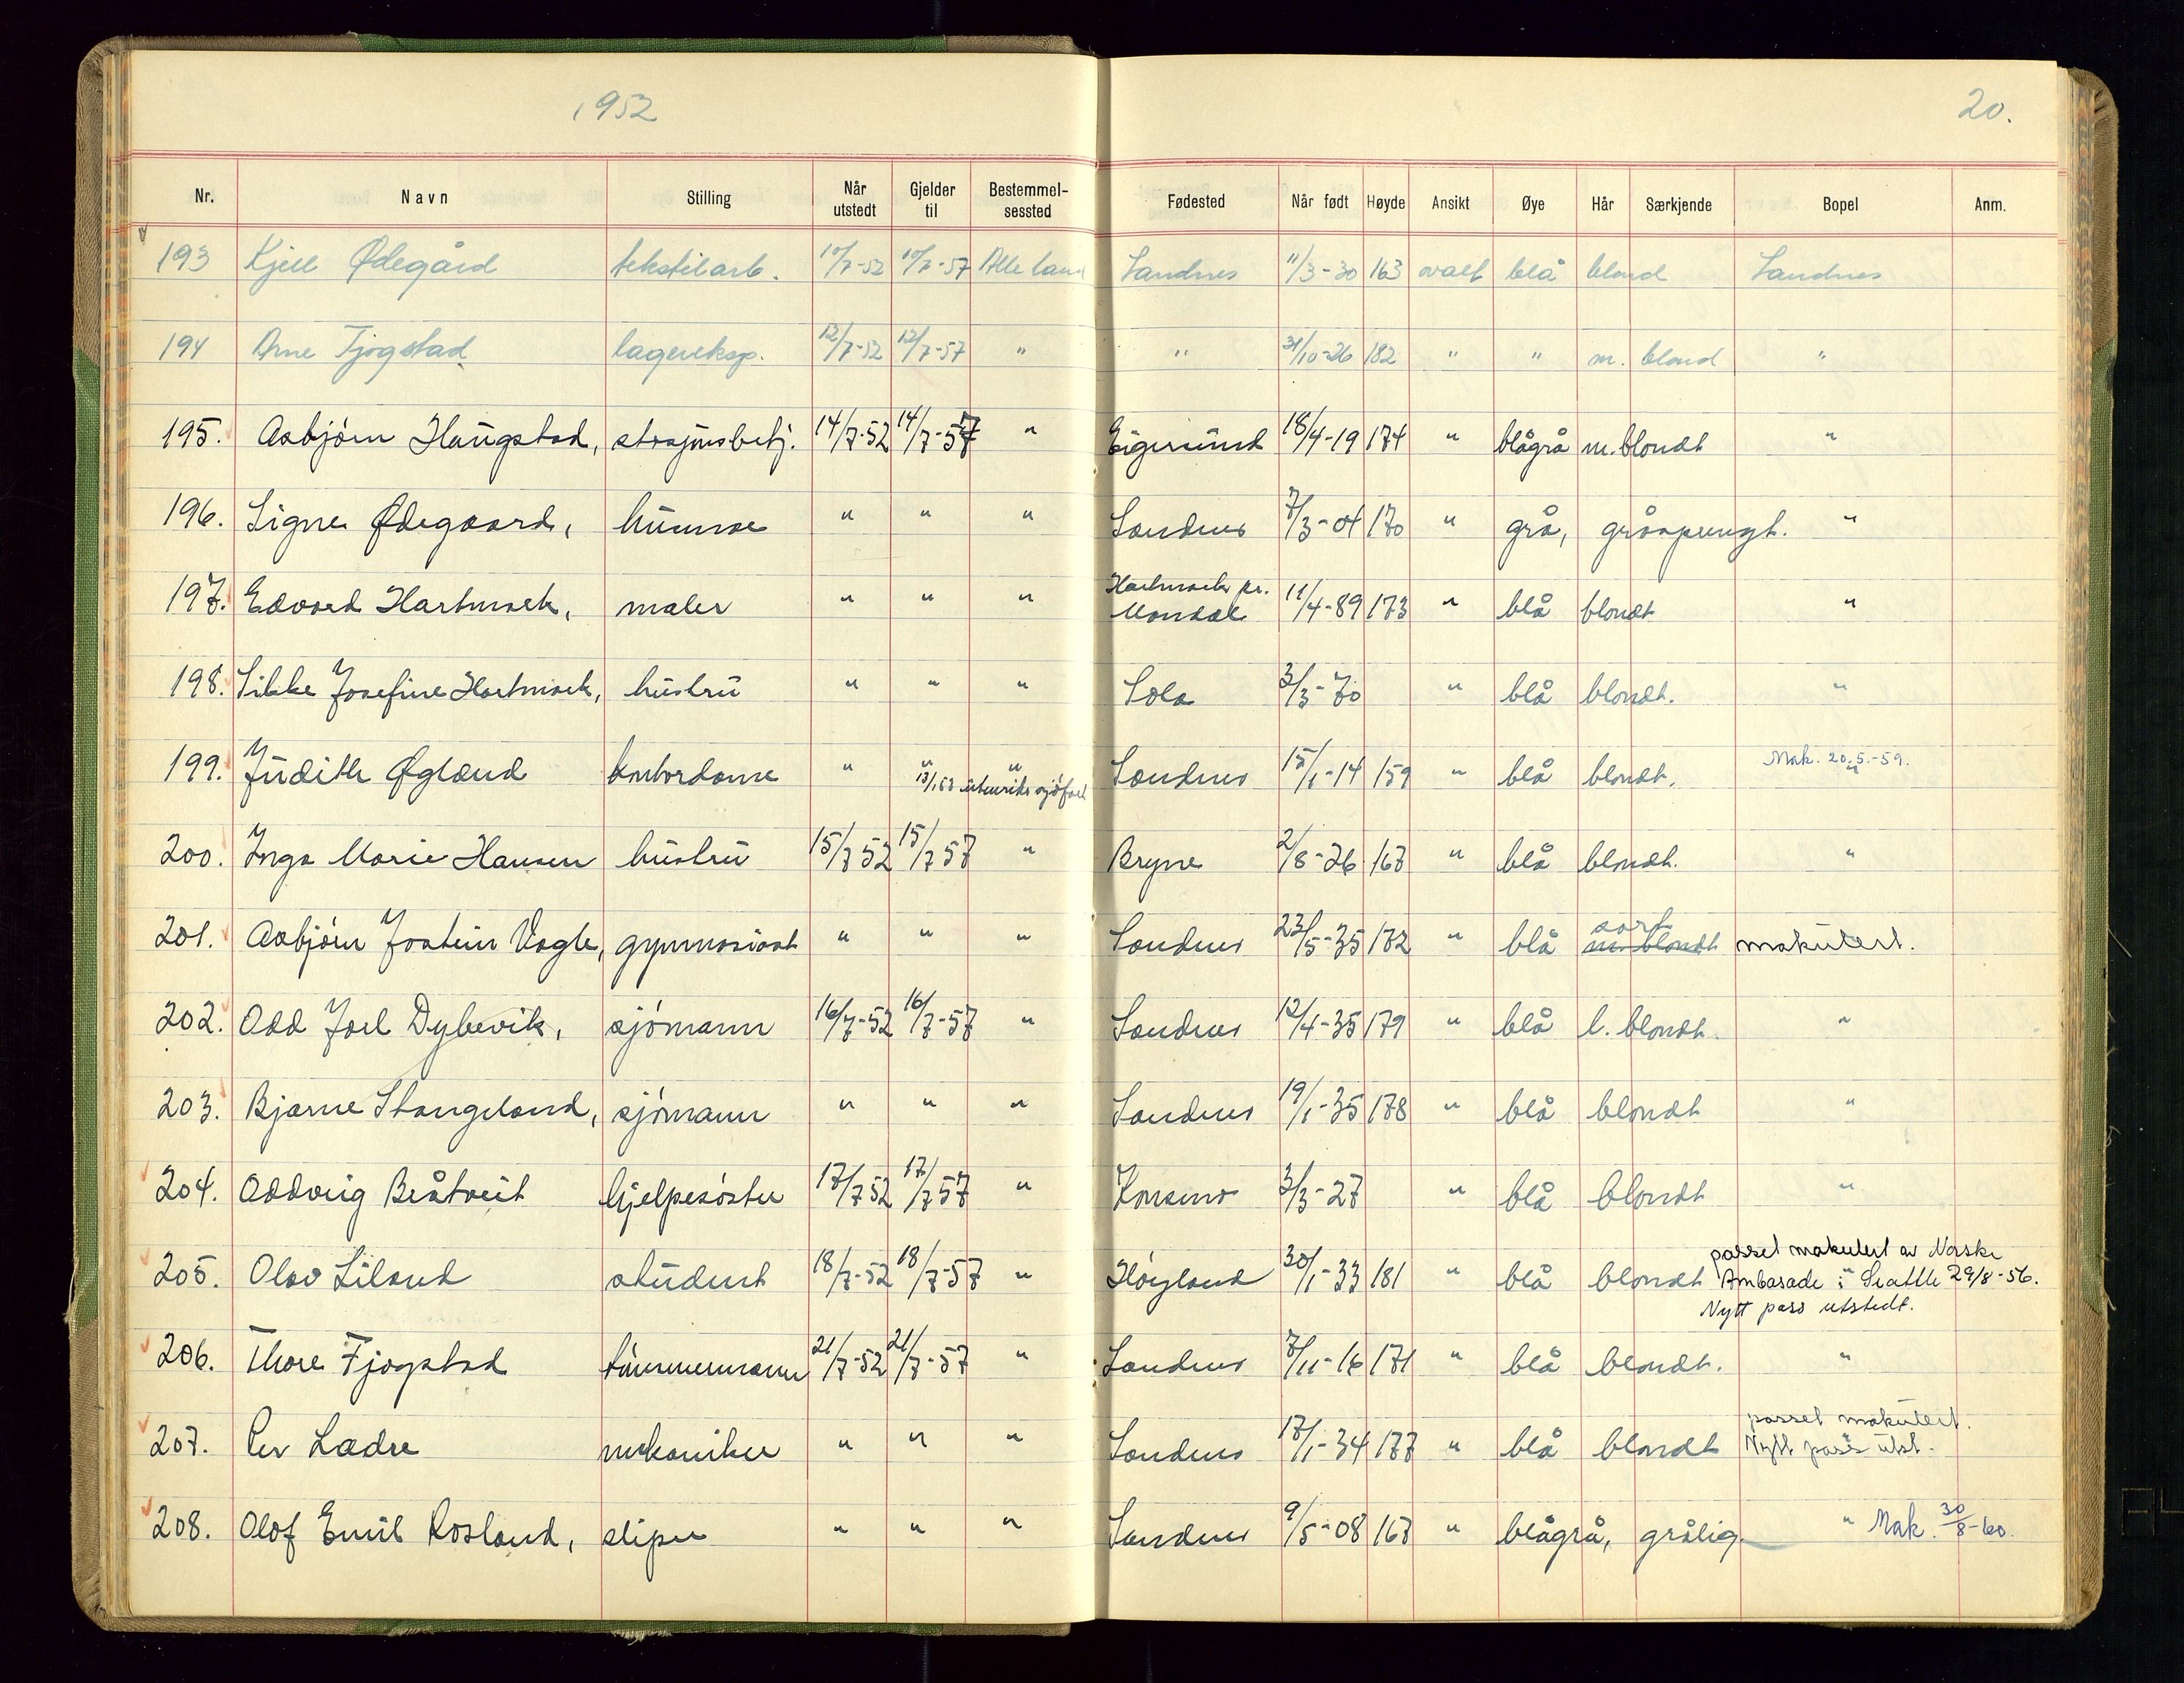 1952
20.
Nr. Navn Stilling Når utstedt Gjelder til Bestemmel-sessted Fødested Når født Høyde Ansikt Øye Hår Særkjende Bopel Anm.
193 Kjell Ødegård tekstilarb. 10/7-52 10/7-57 Alle land Sandnes 11/3-30 163 ovalt blå blond Sandnes
194 Arne Tjogstad lagereksp. 12/7-52 12/7-57 " " 31/10-26 182 " " m. blond "
195. Asbjörn Haugstad, stasjonsbetj. 14/7-52 14/7-57 " Eigersund 18/4-19 174 " blågrå m. blondt "
196. Signe Ødegaard, husmor " " " Sandnes 7/3-04 170 " grå, gråsprengt. "
197. Edvard Hartmark, maler " " " Hartmark pr. Mandal 11/4-89 173 " blå blondt "
198. Sikke Josefine Hartmark, hustru " " " Sola 3/3-70 " blå blondt. "
199. Judith Øglænd kontordame " " " Sandnes 15/1-14 159 " blå blondt. "
Mak. 20.5.-59.
utenriks sjöfart
200. Inga Marie Hansen hustru 15/7 52 15/7 57 " Bryne 2/8-26 167 " blå blondt. "
201. Asbjörn Jostein Vagle, gymnasiast " " " Sandnes 23/5-35 172 " blå m. blondt sort makulert.
202. Odd Joel Dybevik, sjömann 16/7-52 16/7-57 " Sandnes 12/4-35 179 " blå l. blondt. "
203. Bjarne Stangeland, sjömann " " " Sandnes 19/1-35 178 " blå blondt "
204. Oddveig Bråtveit hjelpesöster 17/7 52 17/7 57 " 3/3-27 " blå blondt "
205. Olav Liland student 18/7-52 18/7-57 " Höyland 30/1-33 181 " blå blondt "
passet makulert av Norske Ambasade i Seattle 29/8-56.
Nytt pass utstedt.
206. Thore Tjogstad tömmermann 21/7-52 21/7-57 " Sandnes 7/11-16 171 " blå blondt. "
207. Per Ladre mekaniker " " " Sandnes 17/1-34 177 " blå blondt "
passet makulert.
Nytt pass utst.
208. Olof Emil Rosland, sliper " " " Sandnes 9/5-08 167 " blågrå, grålig. " Mak. 30/8-60.